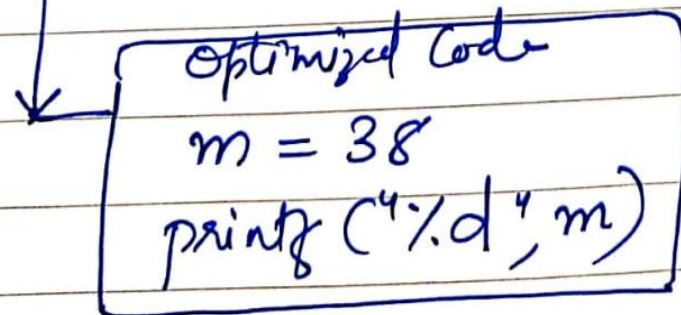 Optimized Code
m = 38
printf ("%d", m)